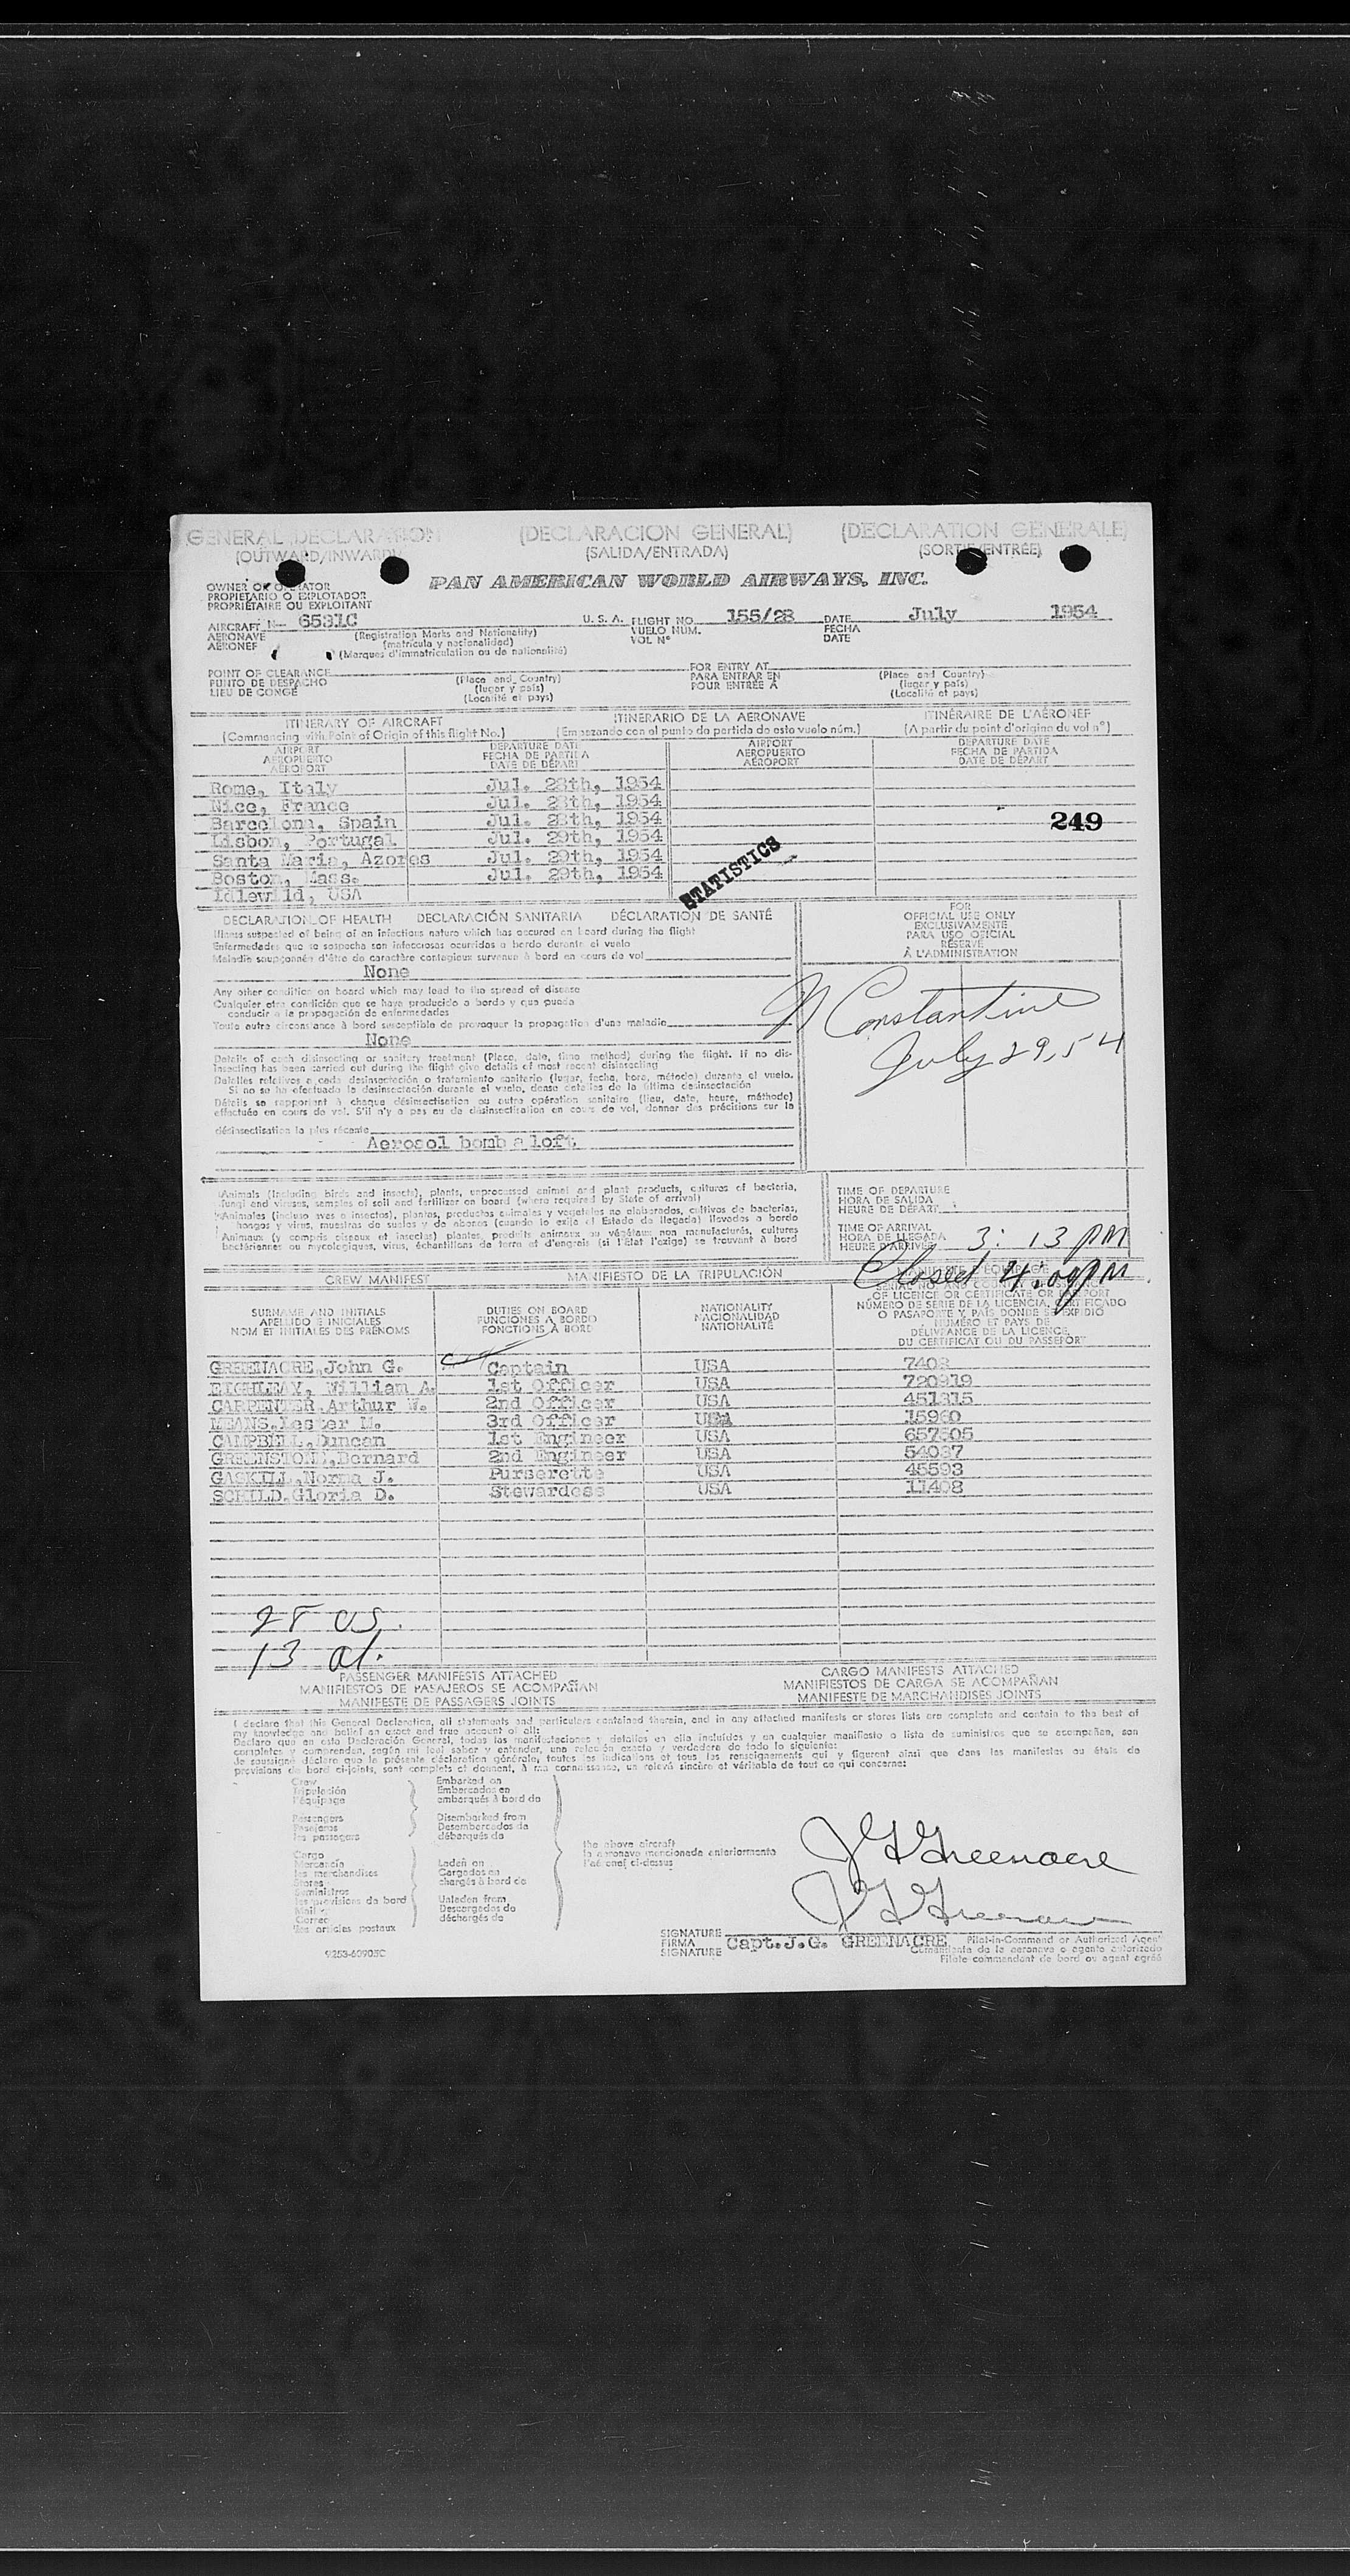 GENERAL DECLARATION (DECLARACION GENERAL) (DECLARATION GENERALE)
(OUTWARD/INWARD) (SALIDA/ENTRADA) (SORTIE/ENTRÉE)
PAN AMERICAN WORLD AIRWAYS, INC.
OWNER OR OPERATOR
PROPIETARIO O EXPLOTADOR
PROPRIÉTAIRE OU EXPLOITANT
AIRCRAFT N- 6531C U. S. A. FLIGHT NO. 155/28 DATE July 1954
AERONAVE (Registration Marks and Nationality) VUELO NUM. FECHA
AERONEF (matrícula y nacionalidad) VOL N° DATE
(Marques d'immatriculation ou de nationalité)
POINT OF CLEARANCE FOR ENTRY AT
PUNTO DE DESPACHO (Place and Country) PARA ENTRAR EN (Place and Country)
LIEU DE CONGÉ (lugar y país) POUR ENTRÉE A (lugar y país)
(Localité et pays) (Localité et pays)
ITINERARY OF AIRCRAFT ITINERARIO DE LA AERONAVE ITINÉRAIRE DE L'AÉRONEF
(Commencing with Point of Origin of this flight No.) (Empezando con el punto de partida de este vuelo núm.) (A partir du point d'origine du vol n°)
AIRPORT DEPARTURE DATE AIRPORT DEPARTURE DATE
AEROPUERTO FECHA DE PARTIDA AEROPUERTO FECHA DE PARTIDA
AÉROPORT DATE DE DÉPART AÉROPORT DATE DE DÉPART
Rome, Italy Jul. 28th, 1954
Nice, France Jul. 28th, 1954
Barcelona, Spain Jul. 28th, 1954 249
Lisbon, Portugal Jul. 29th, 1954
Santa Maria, Azores Jul. 29th, 1954
Boston, Mass. Jul. 29th, 1954
Idlewild, USA
STATISTICS
DECLARATION OF HEALTH DECLARACIÓN SANITARIA DÉCLARATION DE SANTÉ
Illness suspected of being of an infectious nature which has occured on board during the flight
Enfermedades que se sospecha son infecciosas ocurridas a bordo durante el vuelo
Maladie soupçonnée d'être de caractère contagieux survenue à bord en cours de vol
None
Any other condition on board which may lead to the spread of disease
Cualquier otra condición que se haya producido a bordo y que pueda
conducir a la propagación de enfermedades
Toute autre circonstance à bord susceptible de provoquer la propagation d'une maladie
None
Details of each disinsecting or sanitary treatment (Place, date, time method) during the flight. If no dis-
insecting has been carried out during the flight give details of most recent disinsecting
Detalles relativos a cada desinsectación o tratamiento sanitario (lugar, fecha, hora, método) durante el vuelo.
Si no se ha efectuado la desinsectación durante el vuelo, dense detalles de la última desinsectación
Détails se rapportant à chaque désinsectisation ou autre opération sanitaire (lieu, date, heure, méthode)
effectuée en cours de vol. S'il n'y a pas eu de désinsectisation en cours de vol, donner des précisions sur la
désinsectisation la plus récente
Aerosol bomb aloft
FOR
OFFICIAL USE ONLY
EXCLUSIVAMENTE
PARA USO OFICIAL
RÉSERVÉ
À L'ADMINISTRATION
N Constantine
July 29, 54
Animals (including birds and insects), plants, unprocessed animal and plant products, cultures of bacteria,
fungi and viruses, samples of soil and fertilizer on board (where required by State of arrival)
Animales (incluso aves e insectos), plantas, productos animales y vegetales no elaborados, cultivos de bacterias,
hongos y virus, muestras de suelos y de abonos (cuando lo exija el Estado de llegada) llevados a bordo
Animaux (y compris oiseaux et insectes) plantes, produits animaux ou végétaux non manufacturés, cultures
bactériennes ou mycologiques, virus, échantillons de terre et d'engrais (si l'état l'exige) se trouvant à bord
TIME OF DEPARTURE
HORA DE SALIDA
HEURE DE DÉPART
TIME OF ARRIVAL
HORA DE LLEGADA
HEURE D'ARRIVÉE 3:13 PM
Closed 4.09 PM
CREW MANIFEST MANIFIESTO DE LA TRIPULACIÓN
SURNAME AND INITIALS DUTIES ON BOARD NATIONALITY OF LICENCE OR CERTIFICATE OR PASSPORT
APELLIDO E INICIALES FUNCIONES A BORDO NACIONALIDAD NÚMERO DE SERIE DE LA LICENCIA, CERTIFICADO
NOM ET INITIALES DES PRÉNOMS FONCTIONS À BORD NATIONALITÉ O PASAPORTE Y PAÍS DONDE SE EXPIDIÓ
NUMÉRO ET PAYS DE
DÉLIVRANCE DE LA LICENCE,
DU CERTIFICAT OU DU PASSEPORT
GREENACRE, John G. Captain USA 7408
EIGHLEAY, William A. 1st Officer USA 720919
CARPENTER, Arthur W. 2nd Officer USA 451315
MEANS, Lester M. 3rd Officer USA 15960
CAMPBELL, Duncan 1st Engineer USA 657505
GREENSTONE, Bernard 2nd Engineer USA 54037
GASKILL, Norma J. Purserette USA 45593
SCHILD, Gloria D. Stewardess USA 11408
28 US
13 al.
PASSENGER MANIFESTS ATTACHED CARGO MANIFESTS ATTACHED
MANIFIESTOS DE PASAJEROS SE ACOMPAÑAN MANIFIESTOS DE CARGA SE ACOMPAÑAN
MANIFESTE DE PASSAGERS JOINTS MANIFESTE DE MARCHANDISES JOINTS
I declare that this General Declaration, all statements and particulars contained therein, and in any attached manifests or stores lists are complete and contain to the best of
my knowledge and belief an exact and true account of all:
Declaro que en esta Declaración General, todas las manifestaciones y detalles en ella incluídos y en cualquier manifiesto o lista de suministros que se acompañen, son
completos y comprenden, según mi leal saber y entender, una relación exacta y verdadera de todo lo siguiente:
Je soussigné déclare que la présente déclaration générale, toutes les indications et tous les renseignements qui y figurent ainsi que dans les manifestes ou états de
provisions de bord ci-joints, sont complets et donnent, à ma connaissance, un relevé sincère et véritable de tout ce qui concerne:
Crew Embarked on
Tripulación Embarcados en
l'équipage embarqués à bord de
Passengers Disembarked from
Pasajeros Desembarcados de
les passagers débarqués de
Cargo the above aircraft
Mercancía Laden on la aeronave mencionada anteriormente
les marchandises Cargados en l'aéronef ci-dessus
Stores chargés à bord de
Suministros
les provisions de bord Unladen from
Mail Descargados de
Correo déchargés de
les articles postaux
J G Greenacre
J G Greenacre
SIGNATURE
FIRMA Capt. J.G. GREENACRE Pilot-in-Command or Authorized Agent
SIGNATURE Comandante de la aeronave o agente autorizado
Pilote commandant de bord ou agent agréé
9253-60905C